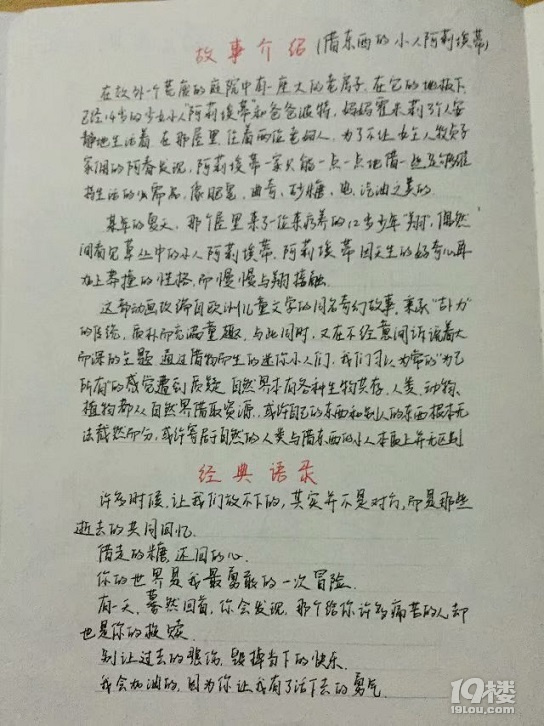 故事介绍(借东西的小人阿莉埃蒂)
在郊外一个荒废的庭院中有一座大的老房子,在它的地板下,
已经14岁的少女小人"阿莉埃蒂"和爸爸波特,妈妈霍米莉3个人安
静地生活着,在那屋里住着两位老妇人,为了不让女主人牧贞子
家佣的阿春发现,阿莉埃蒂一家只能一点一点地借一些足够维
持生活的必需品,像肥皂,曲奇,砂糖,电,汽油之类的.
某年的夏天,那个屋里来了一位来疗养的12岁少年"翔",偶然
间看见草丛中的小人阿莉埃蒂,阿莉埃蒂因天生的好奇心再
加上莽撞的性格,而慢慢与翔接触.
这部动画改编自欧洲儿童文学的同名奇幻故事,秉承"吉卜力"
的传统,质朴而充满童趣,与此同时,又在不经意间诉说着大
而深的主题 通过借物而生的迷你小人们,我们习以为常的"为己
所有"的感觉遭到质疑 自然界本有各种生物共存,人类,动物,
植物都从自然界借取资源,或许自己的东西和别人的东西根本无
法截然而分,或许寄居于自然的人类与借东西的小人本质上并无区别
经典语录
许多时候,让我们放不下的,其实并不是对方,而是那些
逝去的共同回忆.
借走的糖,还回的心.
你的世界是我最勇敢的一次冒险.
有一天,蓦然回首,你会发现,那个给你许多痛苦的人,却
也是你的救赎.
别让过去的悲伤,毁掉当下的快乐.
我会加油的,因为你让我有了活下去的勇气.
19楼
19lou.com